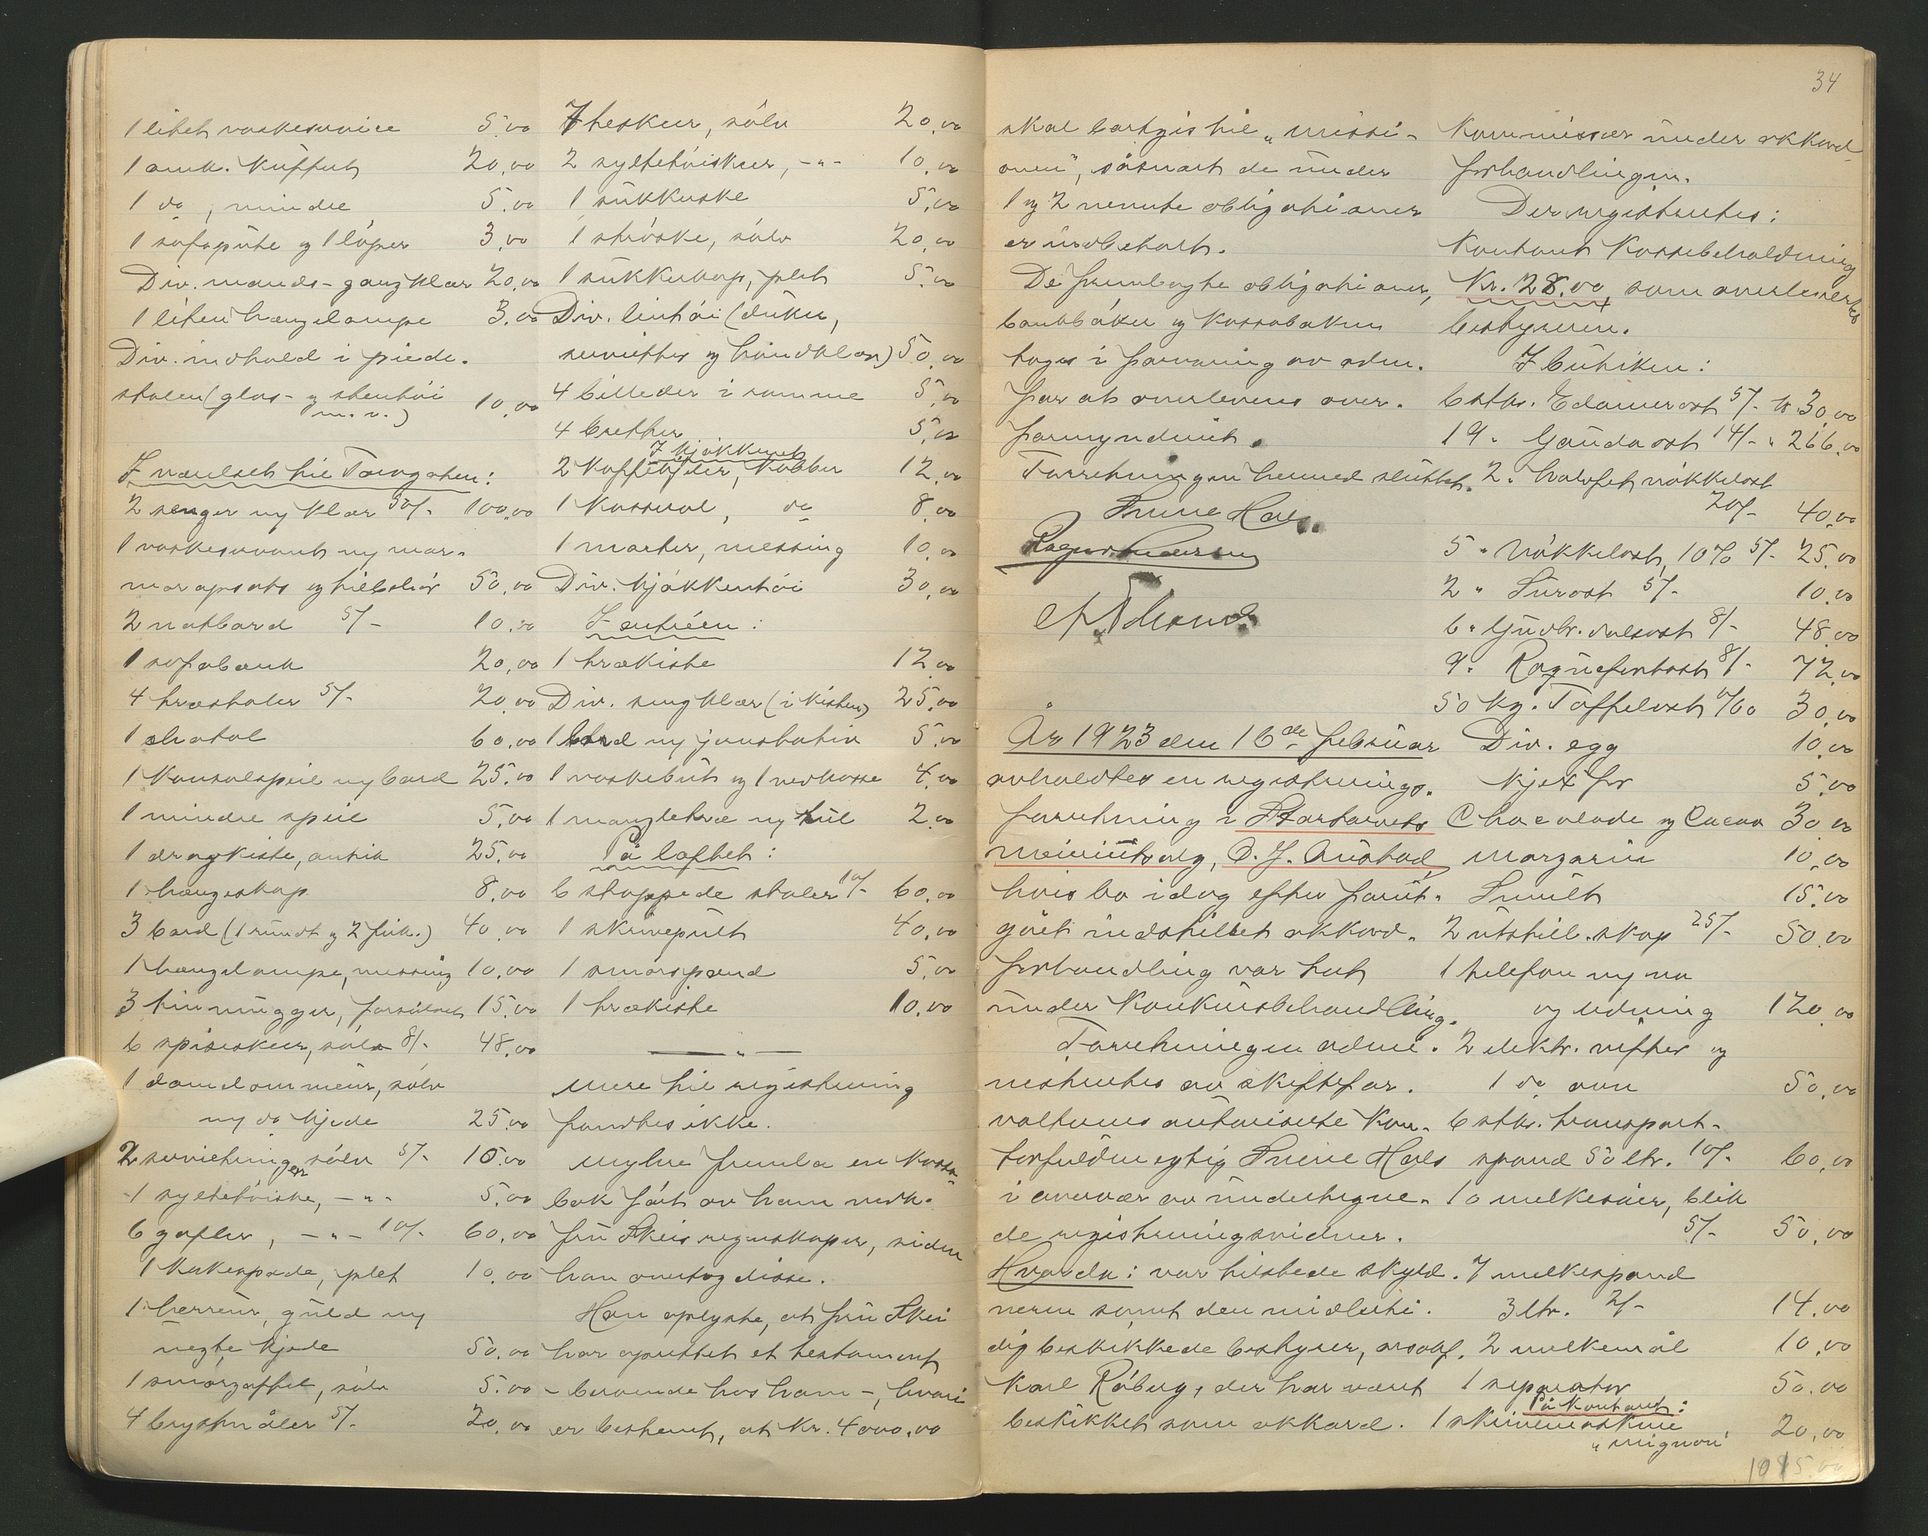 1 litet vaskeservice 5,00
1 amk. kuffert 20,00
1 do, mindre 5,00
1 sofapute og 1 löper 3,00
Div. mands-gangklær 20,00
1 liten hængelampe 3,00
Div. indhold i piede-
stalen (glas- og stentöi
m.v.) 10,00
I værelset til Torvgaten:
2 senger m/ klær 50/- 100,00
1 vaskeservant m/ mar-
moropsats og tilbehör 50,00
2 natbord 5/- 10,00
1 sofabænk 20,00
4 træstoler 5/- 20,00
1 chatol 60,00
1 konsolspeil m/ bord 25,00
1 mindre speil 5,00
1 dragkiste, antik 25,00
1 hængeskap 8,00
3 bord (1 rundt og 2 firk.) 40,00
1 hængelampe, messing 10,00
3 tinmugger, forsölvet 15,00
6 spiseskeer, sölv 8/- 48,00
1 dameloммeur, sölv
m/ do kjede 25,00
2 servietringer, sölv 5/- 10,00
1 syltetöiske, -"- 5,00
6 gafler, -"- 10/- 60,00
1 kakespade, plet 10,00
1 herreur, guld m/
uegte kjede 50,00
1 smörgaffel, sölv 5,00
4 brystnåler 5/- 20,00
7 theskeer, sölv 20,00
2 syltetöiskeer, -"- 10,00
1 sukkerske 5,00
1 ströske, sölv 20,00
1 sukkerkop, plet 5,00
Div. lintöi (duker,
servietter og håndklær) 50,00
4 billeder i ramme 5,00
4 bretter 5,00
I kjökkenet
2 kaffekjeler, kobber 12,00
1 kasserol, do 8,00
1 morter, messing 10,00
Div. kjökkentöi 30,00
I entréen:
1 trækiste 12,00
Div. sengklær (i kisten) 25,00
1 bord m/ 5,00
1 vaskebut og 1 vedkasse 4,00
1 mangletræ m/ rul 2,00
På loftet:
6 stoppede stoler 10/- 60,00
1 skrivepult 40,00
1 smörspand 5,00
1 trækiste 10,00
— " —
Mere til registrering
fandtes ikke.
Myhre fremla en kassa-
bok fört av ham vedk.
fru Skeis regnskaper, siden
han overtog disse.
Han oplyste, at fru Skei
har oprettet et testament
- beroende hos ham -, hvori
er bestemt, at kr. 4000,00
34
skal tilgis til "missi-
onen", såsnart de under
1 og 2 nevnte obligationer
er indbetalt.
De fremlagte obligationer,
bankböker og kassaboken
toges i forvaring av adm.
for at overleveres over-
formynderiet.
Forretningen hermed sluttet.
Signe Hals
Ragnv. Andersen
År 1923 den 16de februar
avholdtes en registrerings-
forretning i Stortorvets
meieriutsalg, O. J. Austad,
hvis bo idag efter forut-
gået indstillet akkord-
forhandling var tat
under konkursbehandling.
Forretningen admi-
nistrertes av skiftefor-
valterens autoriserte kon-
torfuldmegtig Signe Hals
i overvær av undertegne-
de registreringsvidner.
Hvorda: var tilstede skyld-
neren samt den midlerti-
dig beskikkede bestyrer, o.r.sakf.
Karl Röberg, der har vært
beskikket som akkord-
kommissær under akkord-
forhandlingen.
Der registrertes:
Kontant kassebeholdning
Kr. 28.00 som overlevertes
bestyreren.
I butiken:
6 stks. Edamerost 5/- kr. 30,00
19 " Goudaost 14/- " 266,00
2 " halvfet nökkelost
20/- 40,00
5 " Nökkelost, 10% 5/- 25,00
2 " Surost 5/- 10,00
6 " Gudbr.dalsost 8/- 48,00
9 " Roquefortost 8/- 72,00
50 kg. Taffelost 0/60 30,00
Div. egg 10,00
Kjex for 5,00
Chocolade og Cacao 30,00
Margarin 10,00
Smult 15,00
2 utstill.skap 25/- 50,00
1 telefon m/ no
og ledning 120,00
2 elektr. vifter og
1 do ovn 50,00
6 stks. transport-
spand 50 ltr. 10/- 60,00
10 melkesier, blik
5/- 50,00
7 melkespand
3 ltr. 2/- 14,00
2 melkemål 10,00
1 separator 50,00
På kontoret:
1 skrivemaskine
"Mignon" 20,00
1015,00